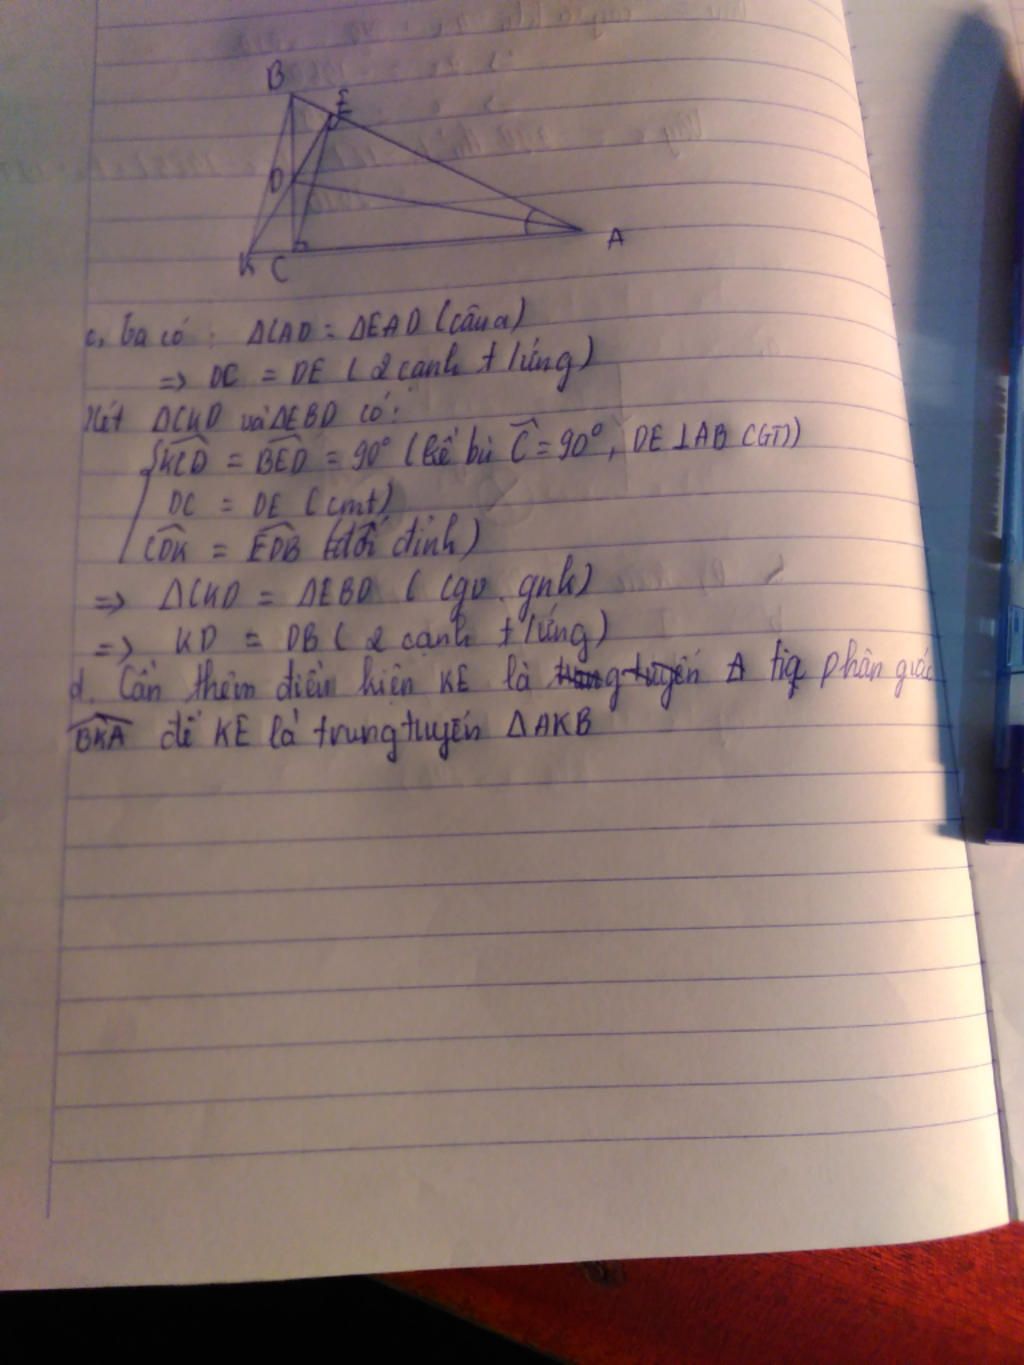 B
E
D
A
K C
c, Ta có : ΔCAD = ΔEAD (câu a)
=> DC = DE ( 2 cạnh t/ứng)
Xét ΔCKD và ΔEBD có:
KCD = BED = 90° (kề bù C = 90°, DE ⊥ AB (GT))
DC = DE ( cmt)
CDK = EDB (đối đỉnh)
=> ΔCKD = ΔEBD ( cgv . gnk)
=> KD = DB ( 2 cạnh t/ứng)
d. Cần thêm điều kiện KE là trung tuyến tia phân giác
BKA để KE là trung tuyến ΔAKB